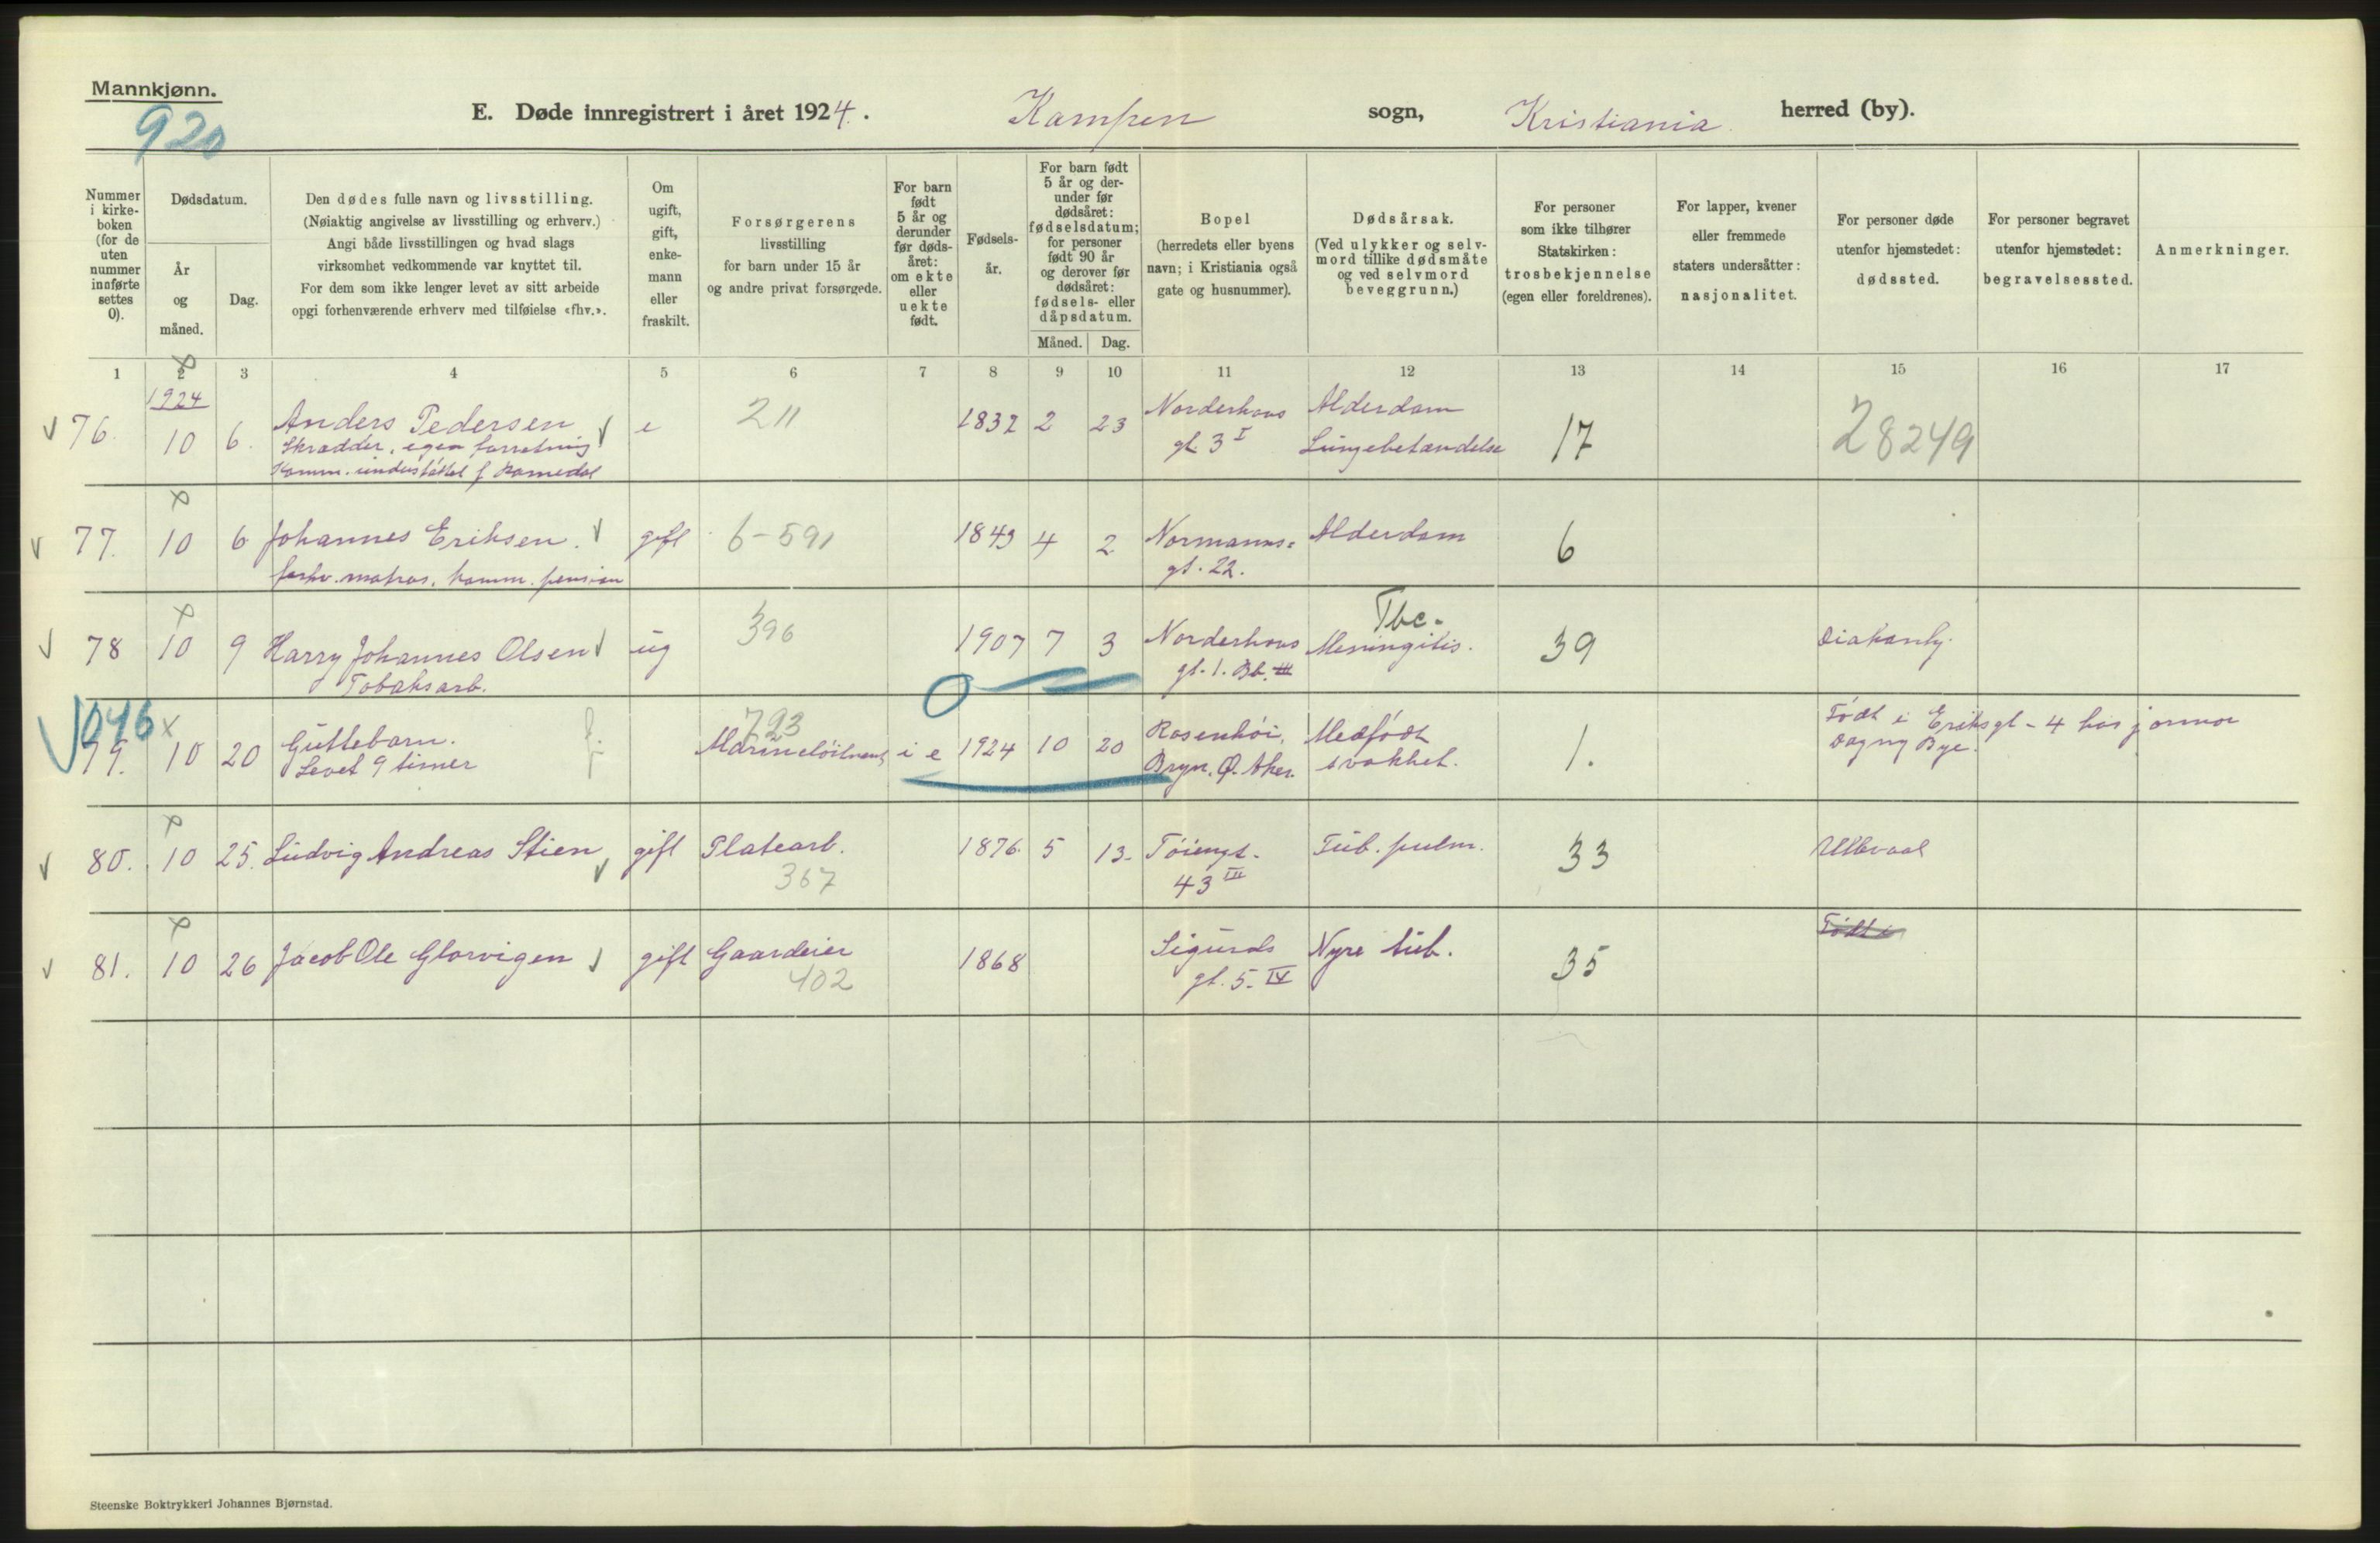 Mannkjønn.
920
E. Døde innregistrert i året 1924. Kampen sogn, Kristiania herred (by).
Nummer i kirke-boken (for de uten nummer innførte settes 0).
Dødsdatum.
År og måned.
Dag.
Den dødes fulle navn og livsstilling.
(Nøiaktig angivelse av livsstilling og erhverv.)
Angi både livsstillingen og hvad slags
virksomhet vedkommende var knyttet til.
For dem som ikke lenger levet av sitt arbeide
opgi forhenværende erhverv med tilføielse «fhv.».
Om ugift, gift, enke-mann eller fraskilt.
Forsørgerens
livsstilling
for barn under 15 år
og andre privat forsørgede.
For barn født 5 år og derunder før døds-året: om ekte eller uekte født.
Fødsels-år.
For barn født 5 år og der-under før dødsåret: fødselsdatum; for personer født 90 år og derover før dødsåret: fødsels- eller dåpsdatum.
Måned.
Dag.
Bopel
(herredets eller byens
navn; i Kristiania også
gate og husnummer).
Dødsårsak.
(Ved ulykker og selv-
mord tillike dødsmåte
og ved selvmord
beveggrunn.)
For personer
som ikke tilhører
Statskirken:
trosbekjennelse
(egen eller foreldrenes).
For lapper, kvener
eller fremmede
staters undersåtter:
nasjonalitet.
For personer døde
utenfor hjemstedet:
dødssted.
For personer begravet
utenfor hjemstedet:
begravelsessted.
Anmerkninger.
1 2 3 4 5 6 7 8 9 10 11 12 13 14 15 16 17
1924
76. 10 6. Anders Pedersen e 211 1832 2 23 Norderhovs Alderdom 17 28249
Skrædder, egen forretning gt 3 I Lungebetændelse
Komm. understøttet f Romedal
77. 10 6 Johannes Eriksen. gift 6-591 1843 4 2 Normanns- Alderdom 6
forhv. matros. komm. pension gt. 22.
Tbc.
78 10 9 Harry Johannes Olsen ug 396 1907 7 3 Norderhovs Meningitis. 39 Diakonhj.
Tobaksarb. gt. 1. Bb. III
1046
79. 10 20 Guttebarn. 793 Marineløitnant i e 1924 10 20 Rosenhøi, Medfødt 1. Født i Eriksgt - 4 hos jormor
Levet 9 timer Bryn. Ø. Aker. svakhet. Dagny Bye.
80. 10 25. Ludvig Andreas Stien gift Platearb. 1876 5 13- Tøiengt. Tub. pulm. 33 Ullevaal
367 43 III
Født i
81. 10 26 Jacob Ole Glorvigen gift Gaardeier 1868 Sigurds Nyre tub. 35
402 gt. 5. IV
Steenske Boktrykkeri Johannes Bjørnstad.